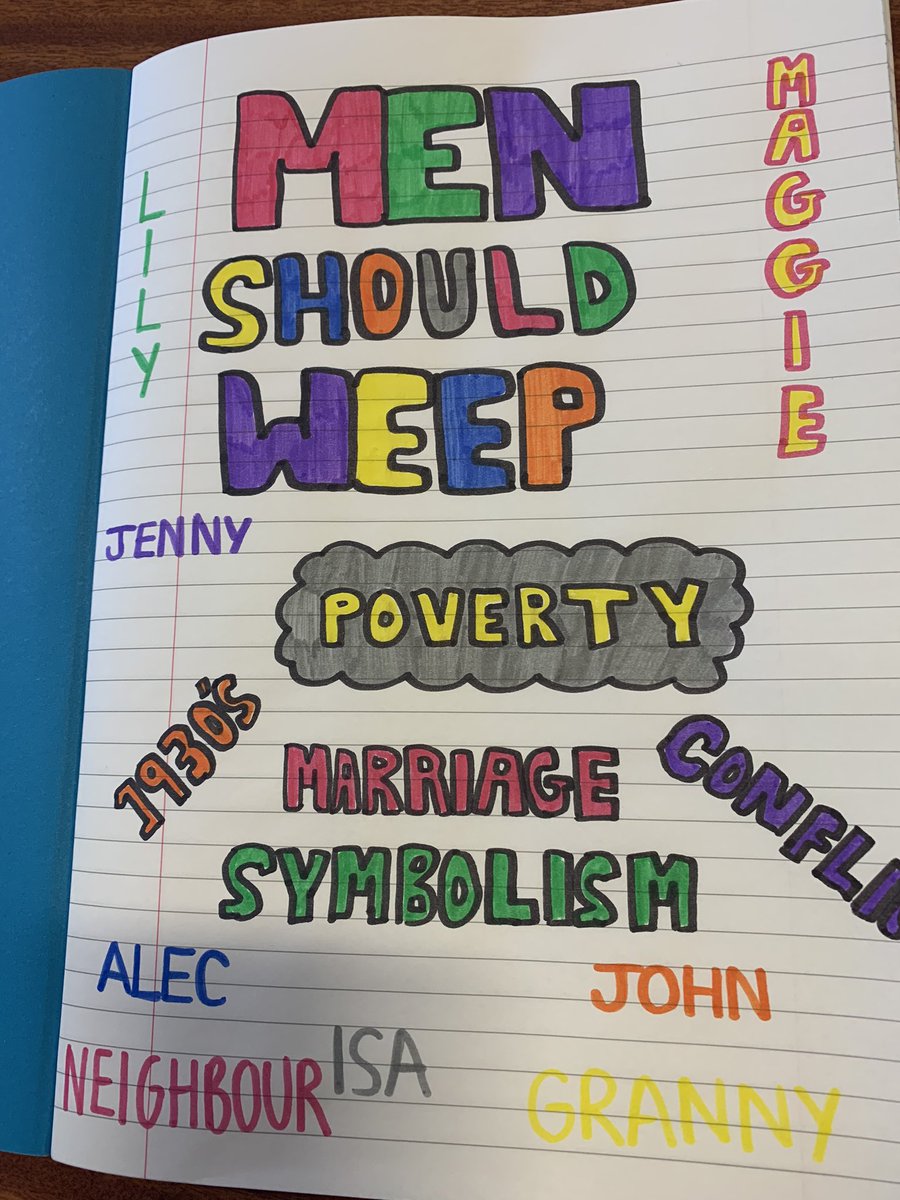 MEN
SHOULD
WEEP
MAGGIE
LILY
JENNY
POVERTY
1930's
MARRIAGE
CONFLI
SYMBOLISM
ALEC
JOHN
NEIGHBOUR
ISA
GRANNY